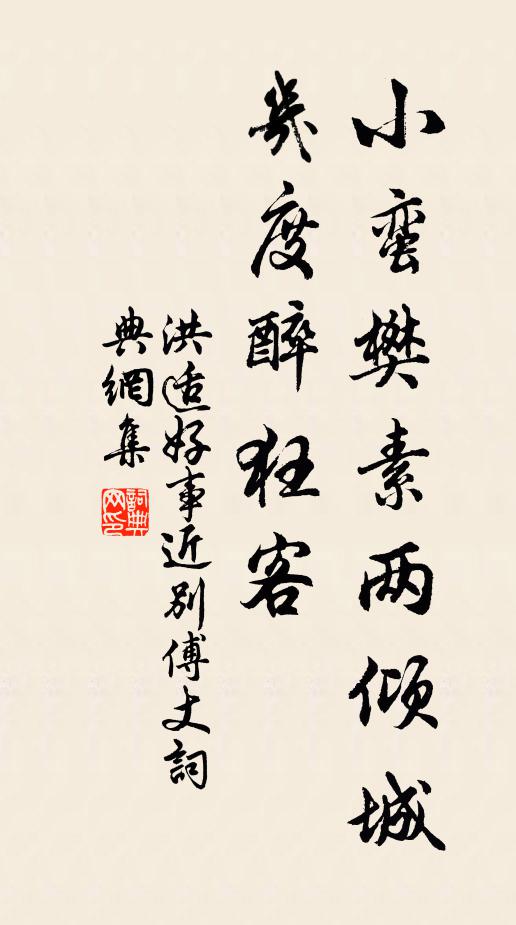 小蛮樊素两倾城
几度醉狂客
洪适好事近别傅丈詞
典網集
詞典网印